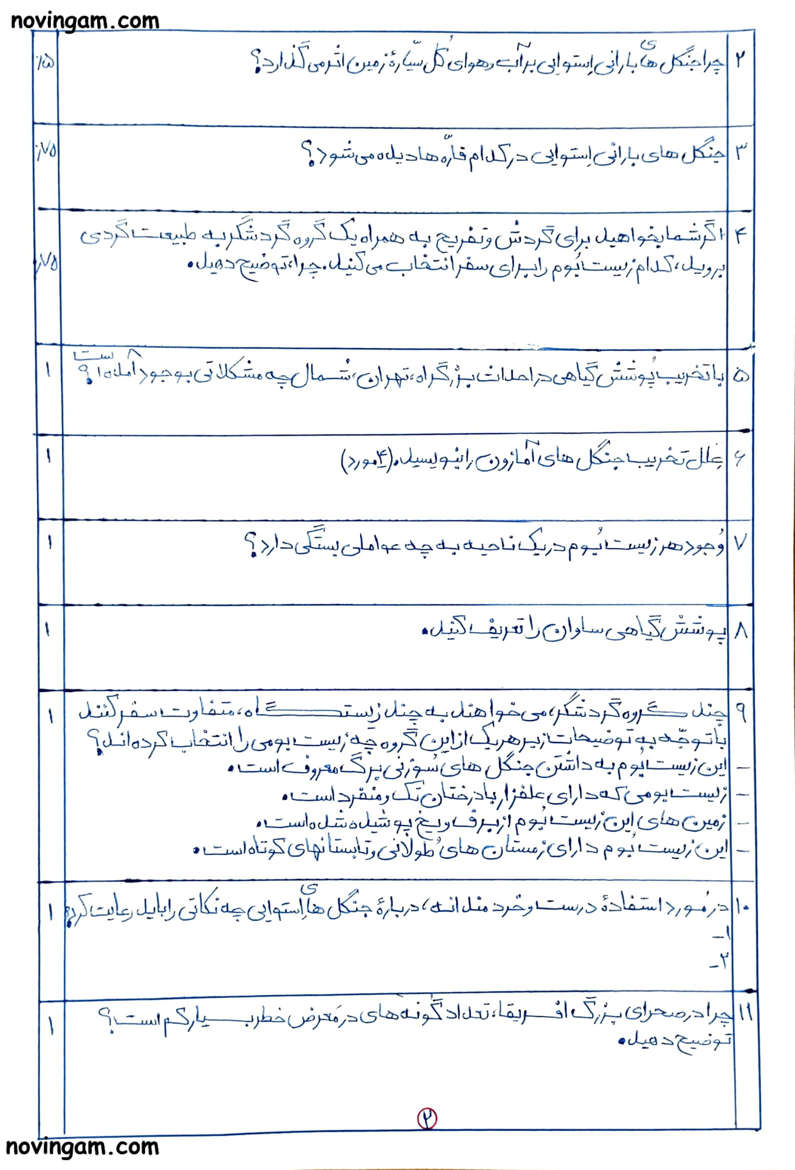 novingam.com
۲ چرا جنگل های بارانی اِستوایی بر آب و هوای کُل سیّارهٔ زمین اثر می گذارد؟ ۱/۵
۳ جنگل های بارانی اِستوایی در کدام قارّه ها دیده می شود؟ ۰/۷۵
۴ اگر شما بخواهید برای گردش و تفریح به همراه یک گروه گردشگر به طبیعت گردی
بروید، کدام زیست بُوم را برای سفر انتخاب می کنید. چرا، توضیح دهید. ۰/۷۵
۵ با تخریب پُوشش گیاهی در احداث بزرگراه، تهران، شمال چه مشکلاتی بوجود آمده است؟ ۱
۶ عِلل تخریب جنگل های آمازون را بنویسید. (۴ مورد) ۱
۷ وُجود هر زیست بُوم در یک ناحیه به چه عواملی بستگی دارد؟ ۱
۸ پوشش گیاهی ساوان را تعریف کنید. ۱
۹ چند گروه گردشگر، می خواهند به چند زیستگاه، متفاوت سفر کنند ۱
با توجّه به توضیحات زیر هر یک از این گروه چه زیست بومی را انتخاب کرده اند؟
– این زیست بُوم به داشتن جنگل های سُوزنی برگ معروف است.
– زیست بومی که دارای علفزار با درختان تک و منفرد است.
– زمین های این زیست بُوم از برف و یخ پوشیده شده است.
– این زیست بُوم دارای زمستان های طُولانی و تابستانهای کوتاه است.
۱۰ در مُورد استفادهٔ درست و خردمندانه، دربارهٔ جنگل های اِستوایی چه نکاتی را باید رعایت کرد؟ ۱
۱–
۲–
۱۱ چرا در صحرای بزرگ افریقا، تعداد گونه های در مَعرض خطر بسیار کم است؟ ۱
توضیح دهید.
۲
novingam.com